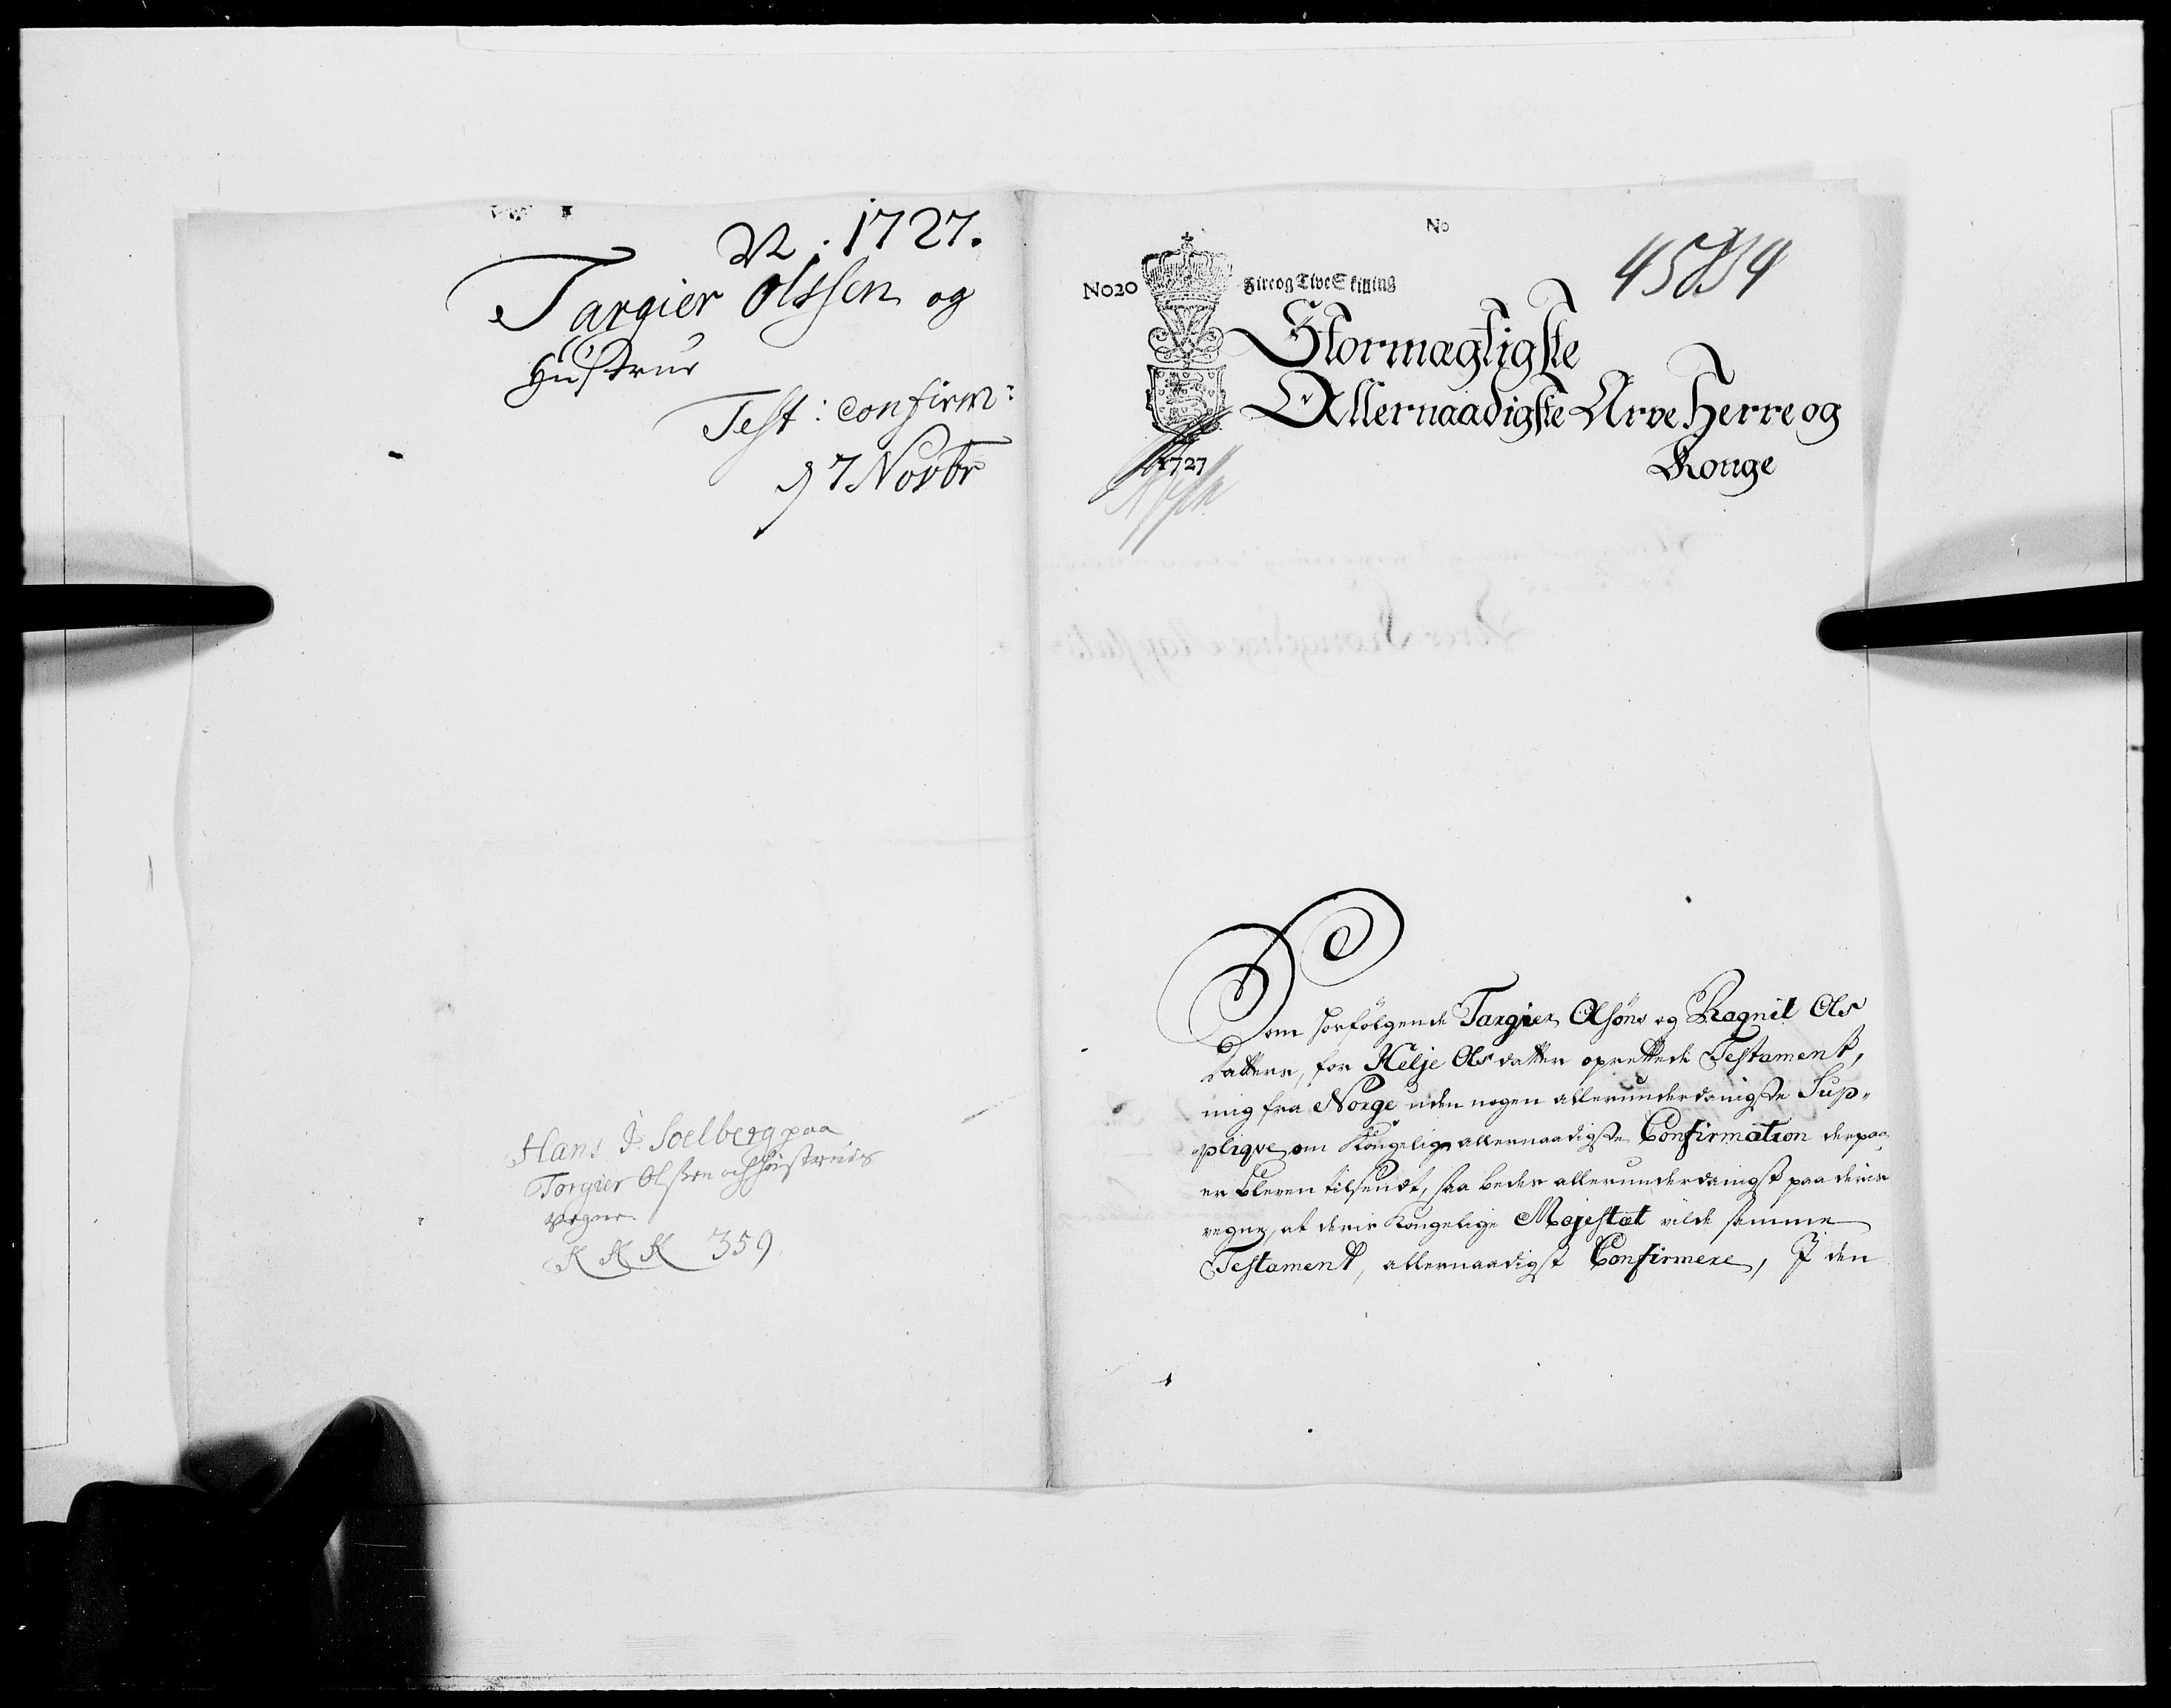 N: 1727.
Targier Olssen og
Hustrue
Test: confirm:
d 7 Novbr
Hans J. Soelberg paa
Torgier Olssen och hustrues
vegne
359
No
4584
No20
Fire og Tive Skilling
Stormægtigste
Allernaadigste Arve Herre og
Konge
1727
Som hosfølgende Targier Olsøns og Ragnil Ols
datters, for Helje Olsdatter oprettede Testament,
mig fra Norge uden nogen allerunderdanigste Sup-
plique om Kongelig allernaadigste Confirmation derpaa
er bleven tilsendt, saa beder allerunderdanigst paa deris
vegne, at deris Kongelige Majestæt vilde samme
Testament, allernaadigst Confirmere, J den